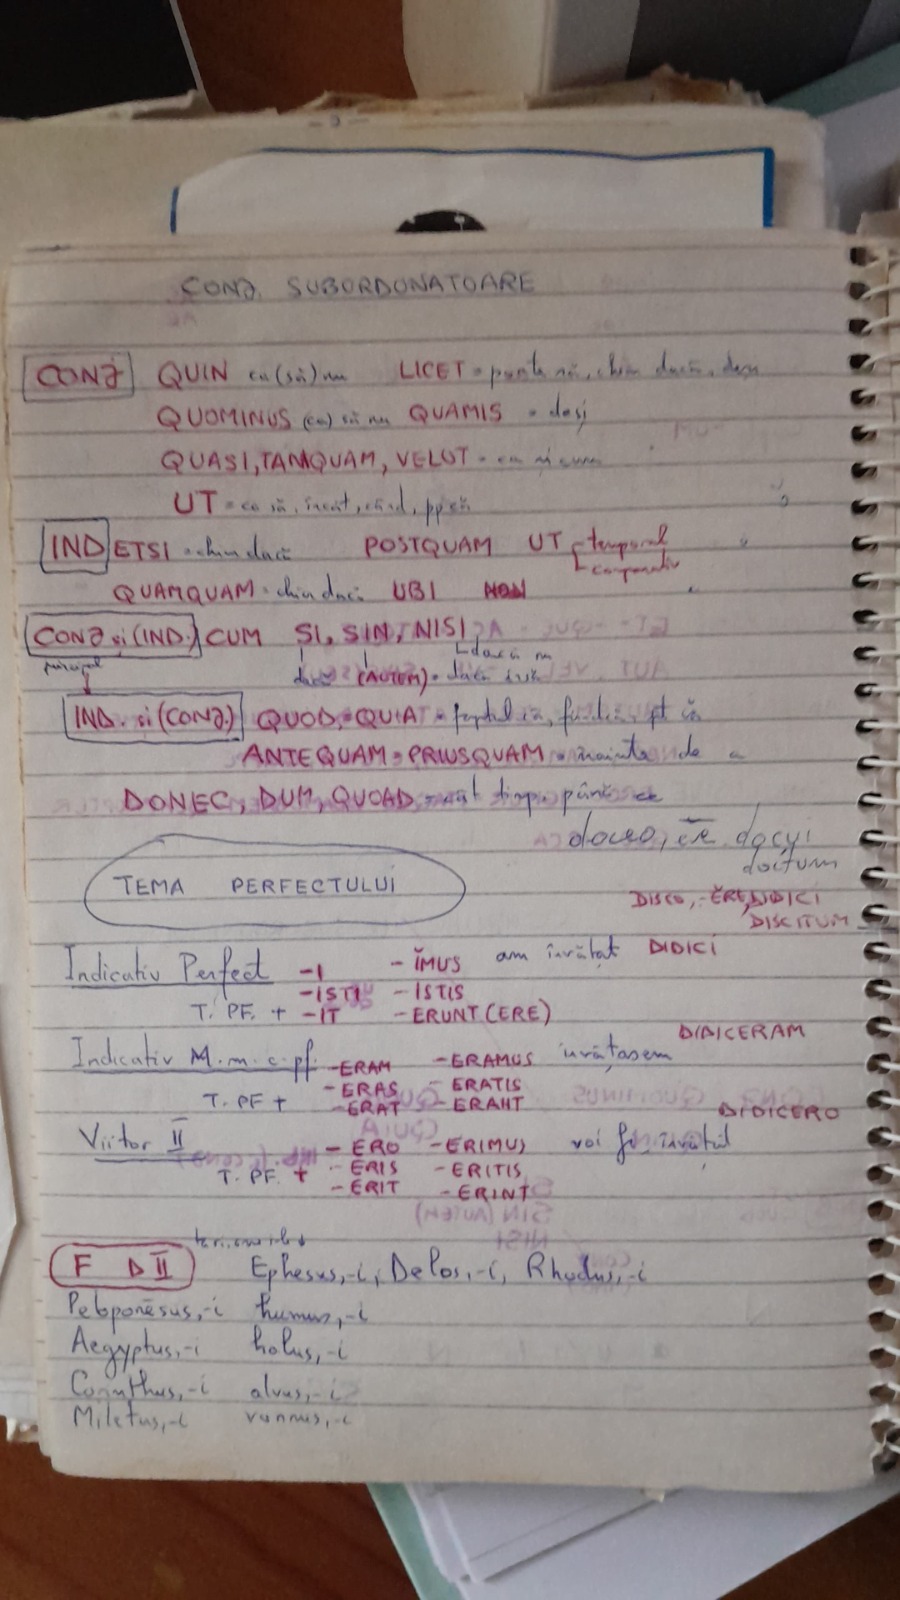 CONJ. SUBORDONATOARE
CONJ QUIN ca(să) nu LICET = poate să, chiar dacă, deși
QUOMINUS (ca) să nu QUAMIS = deși
QUASI, TAMQUAM, VELUT = ca și cum
UT = ca să, încât, când, după că
IND ETSI = chiar dacă POSTQUAM UT temporal
comparativ
QUAMQUAM = chiar dacă UBI
CONJ și (IND.) CUM SI, SIN, NISI
principal dacă (AUTEM) = dacă însă dacă nu
IND. și (CONJ.) QUOD = QUIA = faptul că, fiindcă, pt că
ANTEQUAM = PRIUSQUAM = înainte de a
DONEC, DUM, QUOAD = cât timp, până ce
doceo, ēre, docui
doctum
TEMA PERFECTULUI
DISCO, -ĔRE, DIDICI
DISCITUM
Indicativ Perfect -I - ĬMUS am învățat DIDICI
-ISTI - ISTIS
T. PF. + -IT - ERUNT (ERE)
DIDICERAM
Indicativ M.m.c.pf. -ERAM - ERAMUS învățasem
-ERAS - ERATIS
T. PF + -ERAT - ERANT
DIDICERO
Viitor II - ERO - ERIMUS voi fi învățat
- ERIS - ERITIS
T. PF. + - ERIT - ERINT
F D II Ephesus,-i, Delos,-i, Rhodus,-i
Peloponēsus,-i humus,-i
Aegyptus,-i holus,-i
Corinthus,-i alvus,-i
Miletus,-i vannus,-i